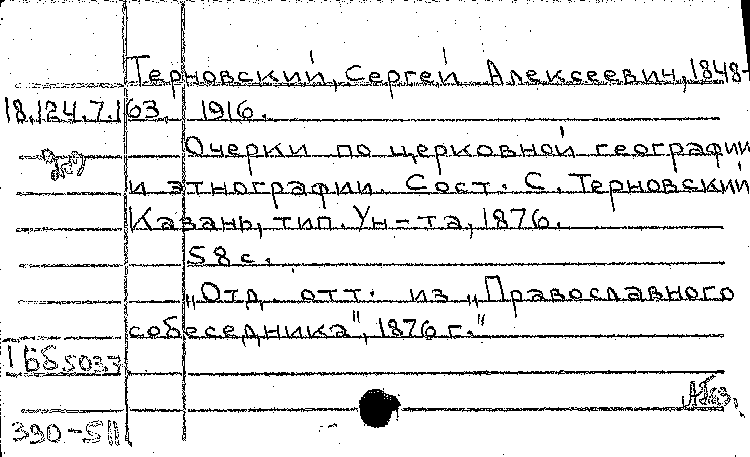 Терновский, Сергей Алексеевич, 1848-
18.124.7.163. 1916.
Очерки по церковной географии
и этнографии. Сост. С. Терновский
Казань, тип. Ун-та, 1876.
58 с.
„Отд. отт. из „Православного
собеседника", 1876 г."
390-511